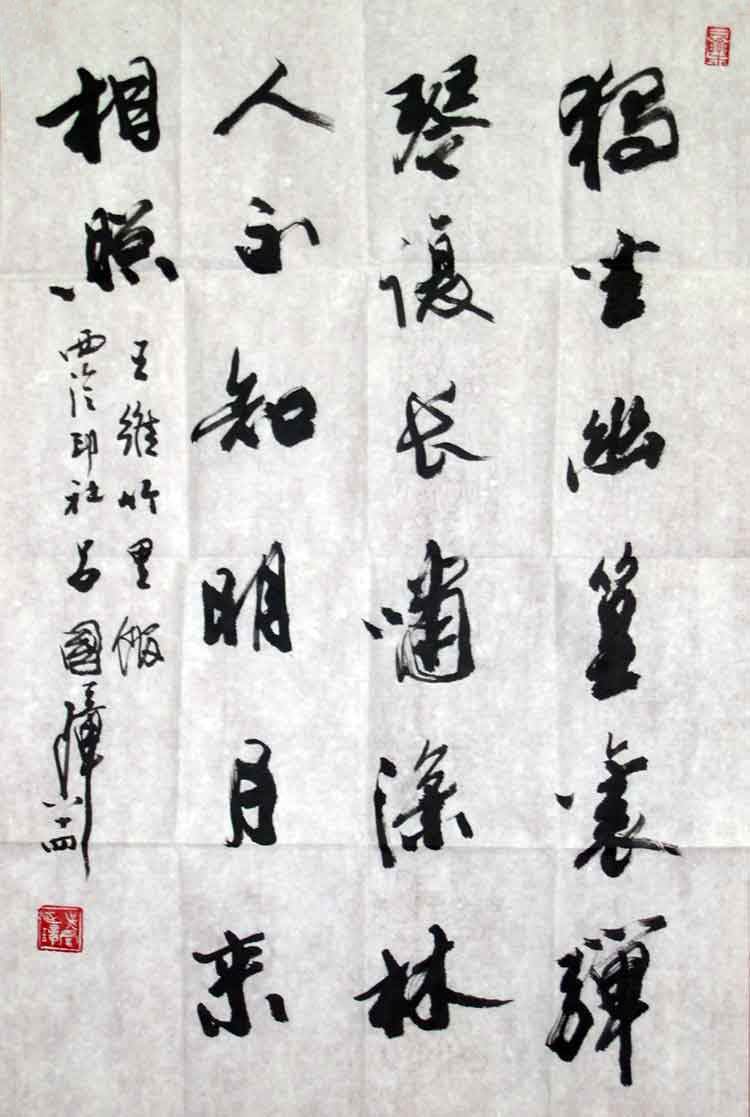 獨坐幽篁裏彈
琴復長嘯深林
人不知明月來
相照
王維竹里館
西泠印社呂國璋八十四